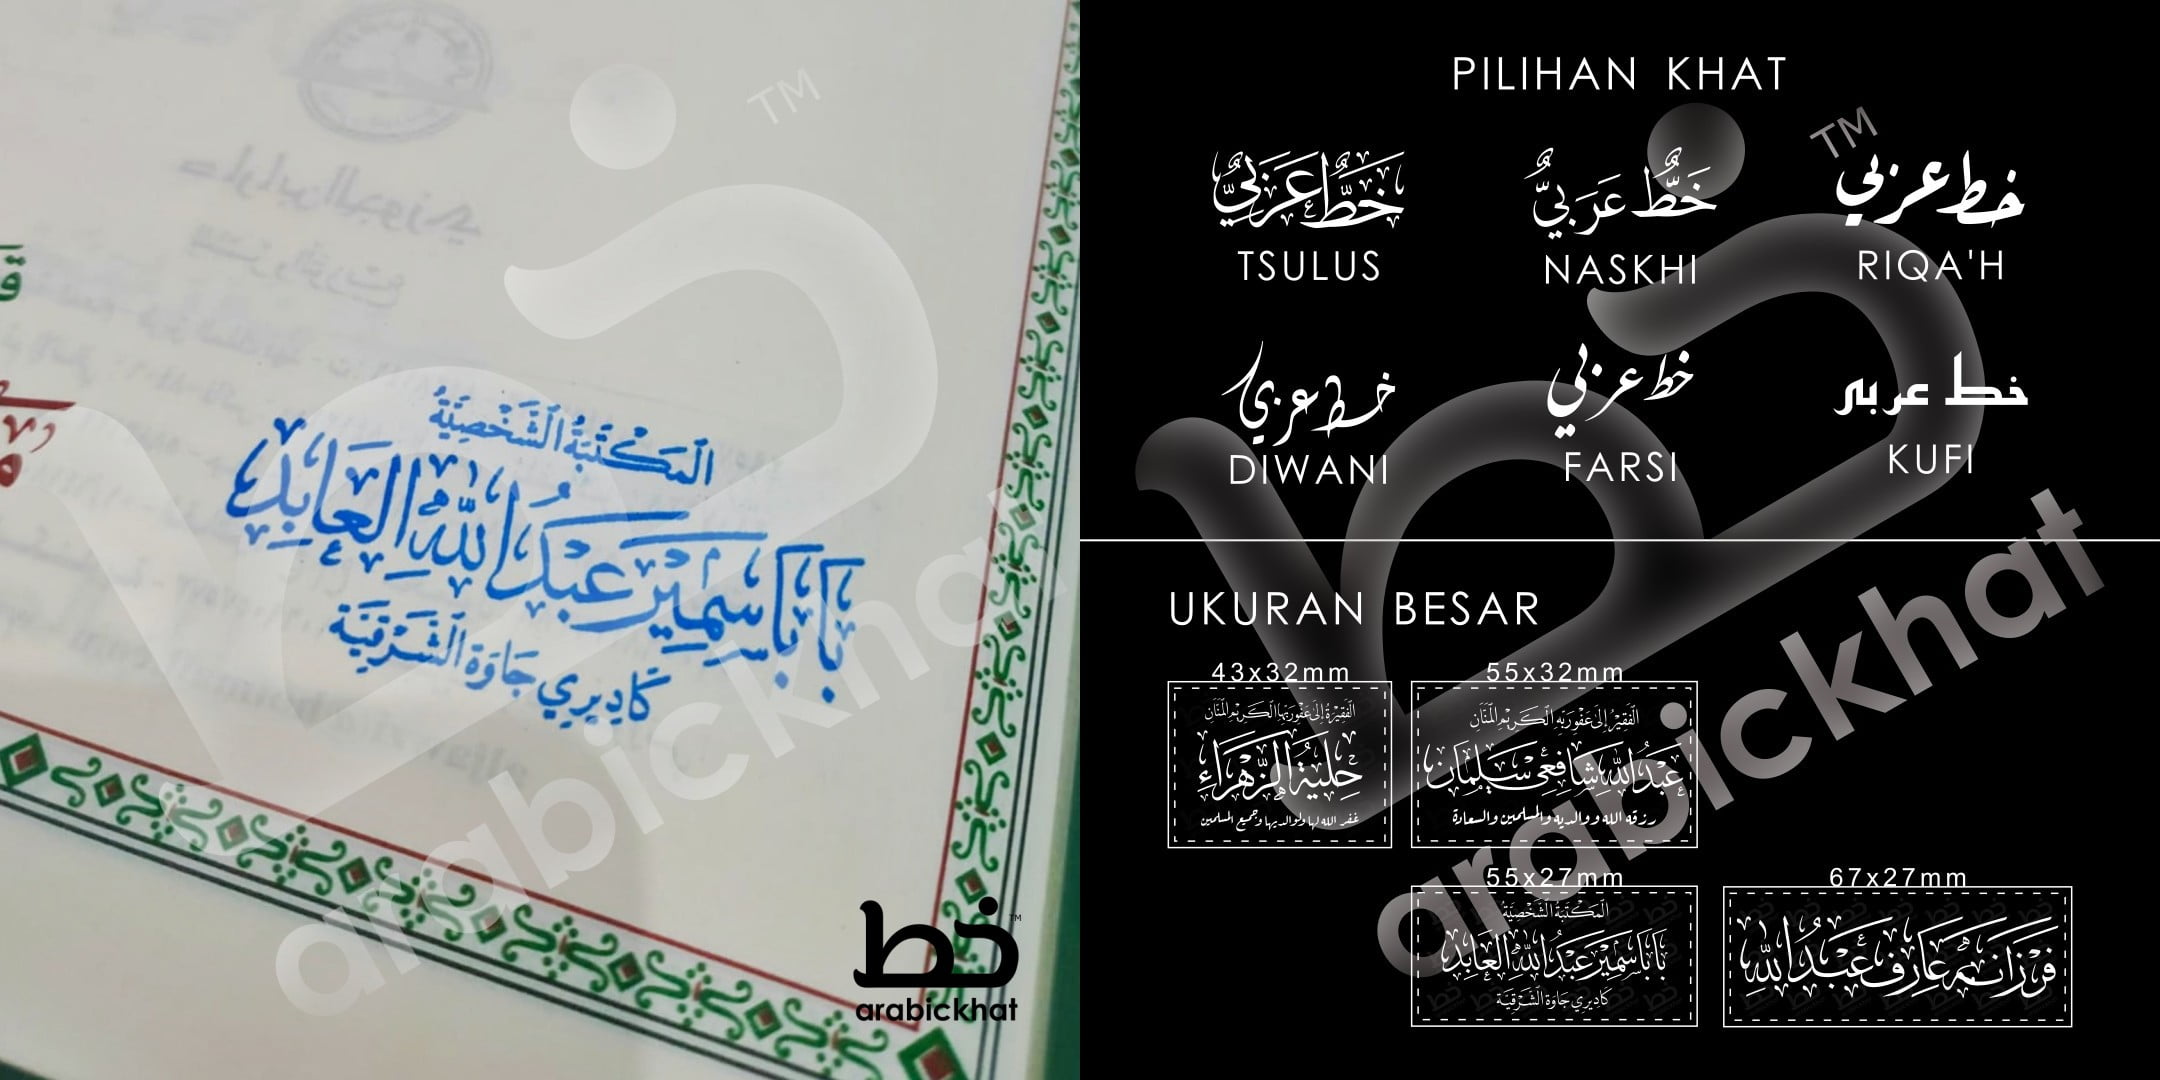 المكتبة الشخصية
بابا سمير عبد الله العابد
كاديري جاوة الشرقية
خط
TM
arabickhat
TM
arabickhat
PILIHAN KHAT
خَطٌّ عَرَبِيٌّ
TSULUS
خَطٌّ عَرَبِيٌّ
NASKHI
خط عربي
RIQA'H
خط عربي
DIWANI
خط عربي
FARSI
خط عربي
KUFI
TM
arabickhat
UKURAN BESAR
43x32mm
الفقيرة إلى عفو ربها الكريم المنان
حلية الزهراء
غفر الله لها ولوالديها وجميع المسلمين
55x32mm
الفقير إلى عفو ربه الكريم المنان
عبد الله شافعي سليمان
رزقه الله ووالديه والمسلمين والسعادة
55x27mm
المكتبة الشخصية
بابا سمير عبد الله العابد
كاديري جاوة الشرقية
67x27mm
فرزانه عارف عبد الله